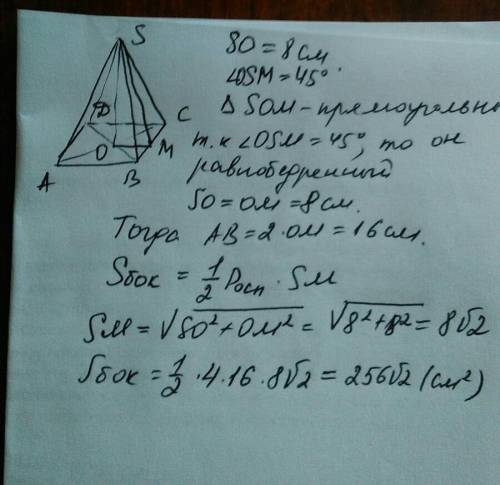 S
D
C
O
M
A
B
SO = 8 см
∠OSM = 45°.
Δ SOM - прямоугольн
т.к ∠OSM = 45°, то он
равнобедренный
SO = OM = 8 см.
Тогда AB = 2·OM = 16 см.
Sбок = 1/2 Pосн · SM
SM = √SO²+OM² = √8²+8² = 8√2
Sбок = 1/2 · 4 · 16 · 8√2 = 256√2 (см²)